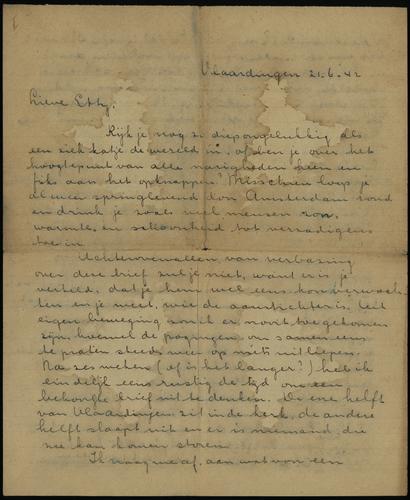 Vlaardingen 21.6.42
Lieve Etty,
Kijk je nog zo diep ongelukkig als
een ziek katje de wereld in, of ben je over het
hoogtepunt van alle narigheden heen en
fiks aan het opknappen? Misschien loop je
alweer springlevend door Amsterdam rond
en drink je zoals veel mensen zon,
warmte en schoonheid tot verzadigens
toe in.
Achterovervallen van verbazing
over deze brief zul je niet, want er is je
verteld, dat je hem wel eens kon verwach-
ten en je weet, wie de aanstichter is. Uit
eigen beweging zou ik er nooit toe gekomen
zijn, hoewel de pogingen om samen eens
te praten steeds weer op niets uitliepen.
Na zes weken (of is het langer?) heb ik
eindelijk eens rustig de tijd om een
behoorlijke brief uit te denken. De ene helft
van Vlaardingen zit in de kerk, de andere
helft slaapt uit en er is niemand, die
me kan komen storen.
Ik vraag me af, aan wat voor een